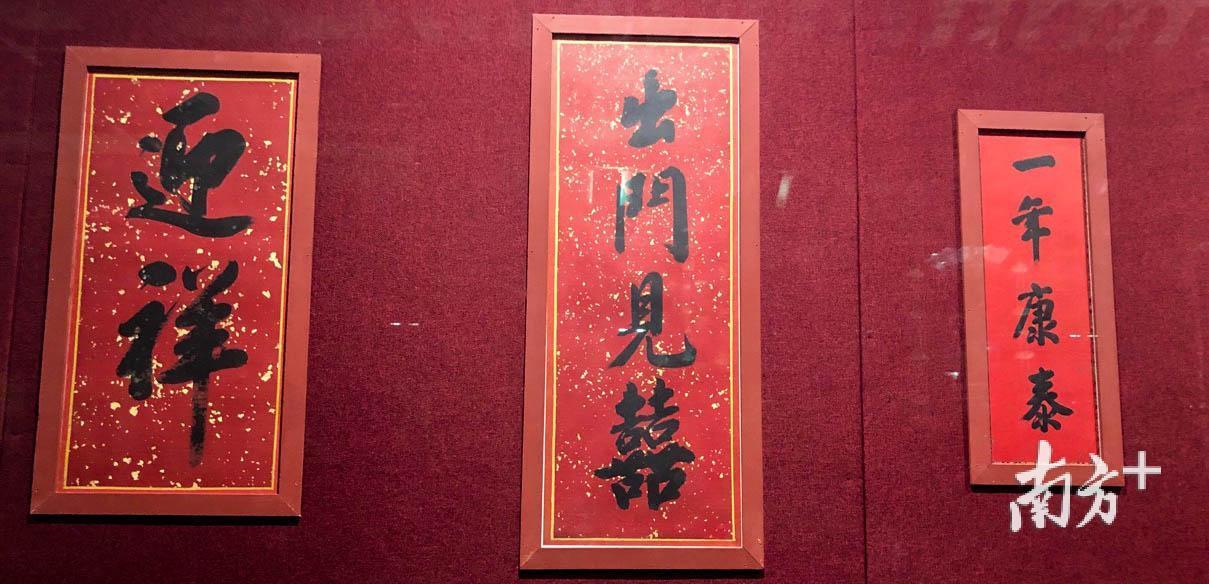 迎祥
出門見囍
一年康泰
南方+